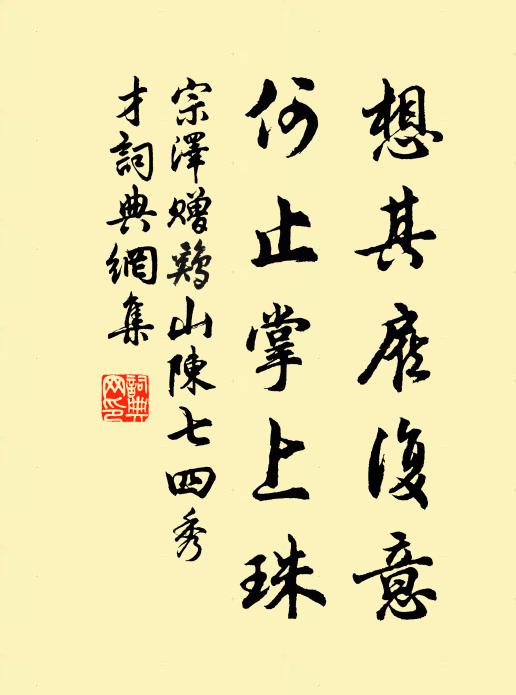 想其顧復意
何止掌上珠
宗澤贈鷄山陳七四秀
才詞典網集
詞典網印